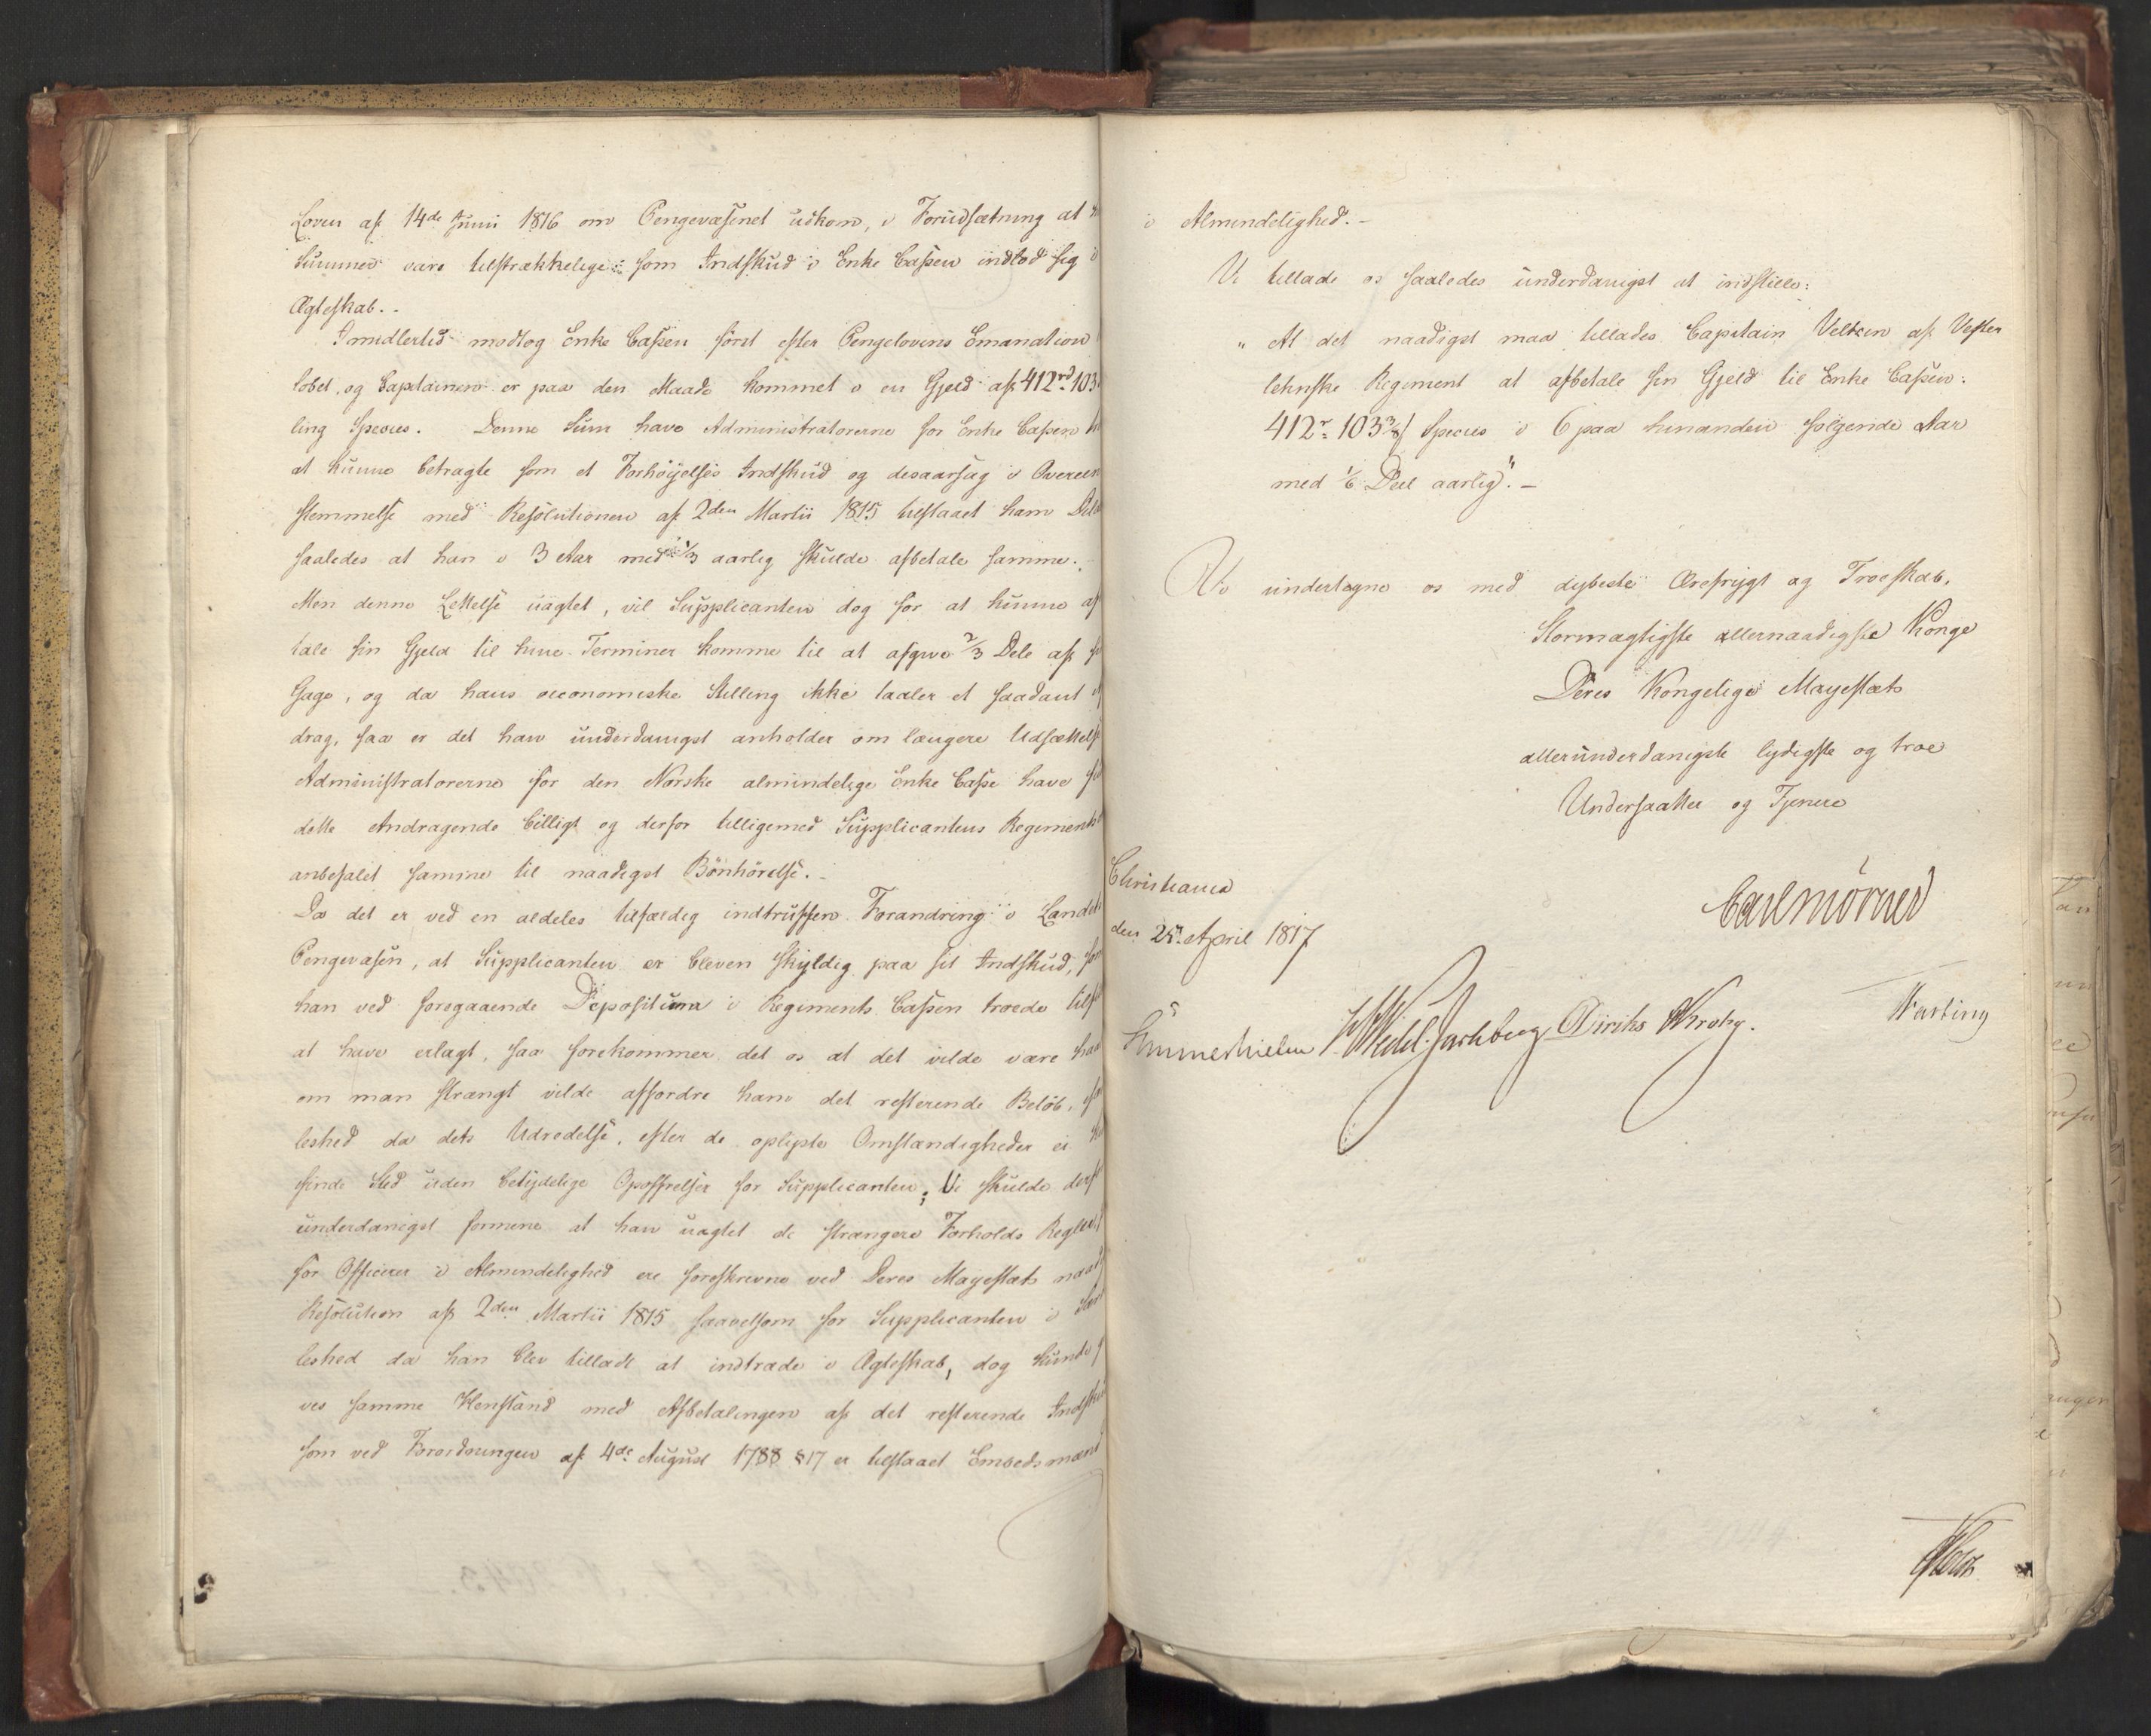 Loven af 14de Juni 1816 om Pengevæsenet udkom, i Forudsætning at
Summer vare tilstrækkelige som Indskud i Enke Cassen indlod sig i
Ægteskab. -
Imidlertid modtog Enke Cassen först efter Pengelovens Emanation
lobet, og Capitainen er paa den Maade kommet i en Gjeld af 412rd 103
ling Species. Denne Sum have Administratorerne for Enke Cassen
at kunne betragte som et Forhöyelses Indskud og desaarsag i Overeen
stemmelse med Resolutionen af 2den Martii 1815 tilstaaet ham
saaledes at han i 3 Aar med 1/3 aarlig skulde afbetale samme.
Men denne Lettelse uagtet, vil Supplicanten dog for at kunne af
tale sin Gjeld til hine Terminer komme til at afgive 2/3 Dele af
Gage, og da hans oeconomiske Stilling ikke taaler et saadant
drag, saa er det han underdanigst anholder om længere Udsættelse
Administratorerne for den Norske almindelige Enke Casse have
dette Andragende billigt og derfor tilligemed Supplicantens Regiment
anbefalet samme til naadigst Bönhörelse. -
Da det er ved en aldeles tilfældig indtruffen Forandring i Landets
Pengevæsen, at Supplicanten er bleven skyldig paa sit Indskud,
han ved foregaaende Depositum i Regiments Cassen troede
at have erlagt, saa forekommer det os at det vilde være
om man strængt vilde affordre ham det resterende Belöb,
leshed da dets Udredelse, efter de oplyste Omstændigheder ei
finde Sted uden betydelige Opoffrelser for Supplicanten; Vi skulde
underdanigst formene at han uagtet de strængere Forholds Regler
for Officerer i Almindelighed ere foreskrevne ved Deres Mayestæts
Resolution af 2den Martii 1815 saavelsom for Supplicanten i
leshed da han blev tilladt at indtræde i Ægteskab, dog kunde
ves samme Henstand med Afbetalingen af det resterende
som ved Forordningen af 4de August 1788 § 17 er tilstaaet Embedsmænd
i Almindelighed. -
Vi tillade os saaledes underdanigst at indstille:
" At det naadigst maa tillades Capitain Veltzen af Vester
lehnske Regiment at afbetale sin Gjeld til Enke Cassen:
412r 103 3/8 s Species i 6 paa hinanden fölgende Aar
med 1/6 Deel aarlig". -
Vi undertegne os med dybeste Ærefrygt og Troeskab,
Stormægtigste allernaadigste Konge
Deres Kongelige Mayestæts
allerunderdanigste lydigste og troe
Undersaatter og Tjenere
Christiania
den 25 April 1817
Carl Mörner
Sommerhielm HWedel Jarlsberg Diriks Krohg.
Fasting
Holst